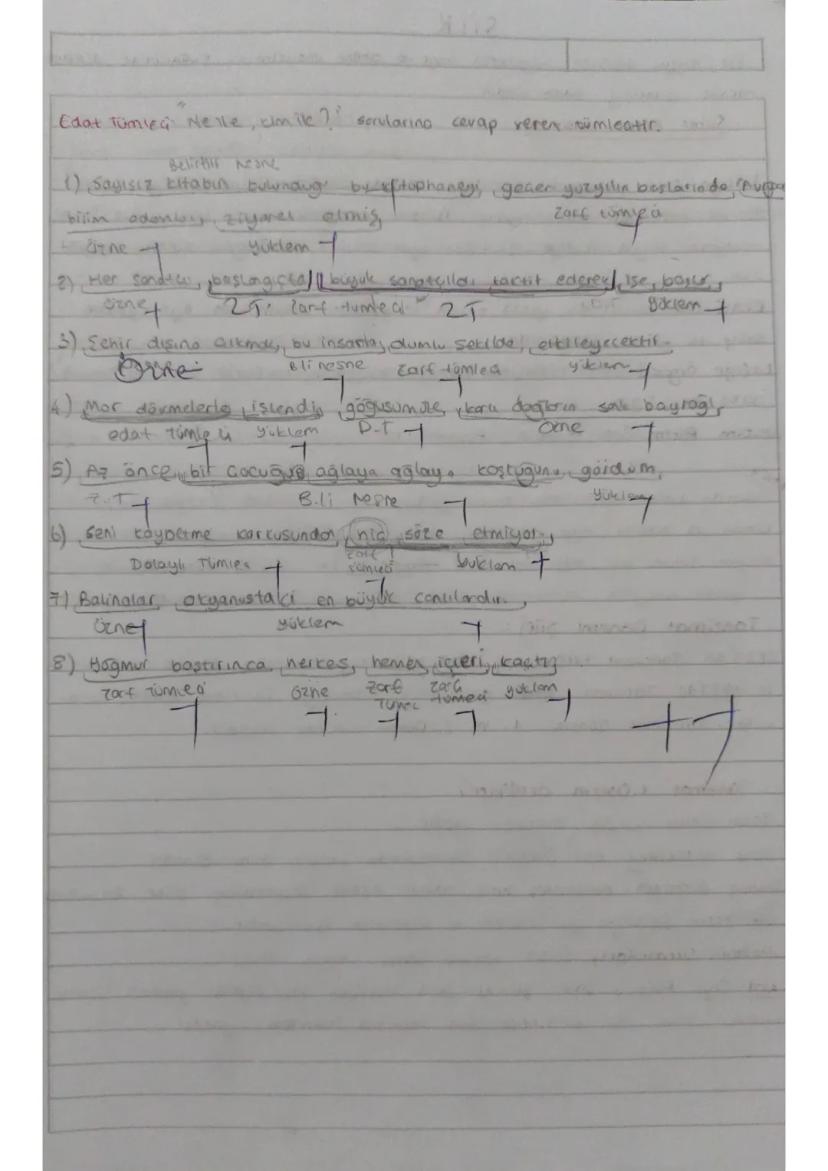 Edat Tümleci "Ne ile, kim ile?" sorularına cevap veren tümleçtir.
Belirtili Nesne
1) Sayısız kitabın bulunduğu bu kütüphaneyi, geçen yüzyılın başlarında, Avrupa
bilim adamları, ziyaret etmiş,
zarf tümleci
özne yüklem
2) Her sanatçı, başlangıçta büyük sanatçıları taklit ederek işe, başlar,
özne Z.T. zarf tümleci Z.T D.T yüklem
3) Şehir dışına çıkmak, bu insanları, olumlu şekilde, etkileyecektir.
Özne B.li nesne zarf tümleci yüklem
4) Mor dövmelerle, işlendi, göğsümüze, karlı dağların bayrağı,
edat tümleci yüklem D.T Özne
5) Az önce, bir çocuğun ağlaya ağlaya koştuğunu, gördüm,
Z.T B.li Nesne yüklem
6) Seni kaybetme korkusundan, hiç söze etmiyor,
Dolaylı Tümleç zarf tümleci yüklem
7) Balinalar, okyanustaki en büyük canlılardır.,
özne yüklem
8) Yağmur bastırınca, herkes, hemen, içeri, kaçtı,
zarf tümleci özne zarf zarf yüklem
tümleci tümleci